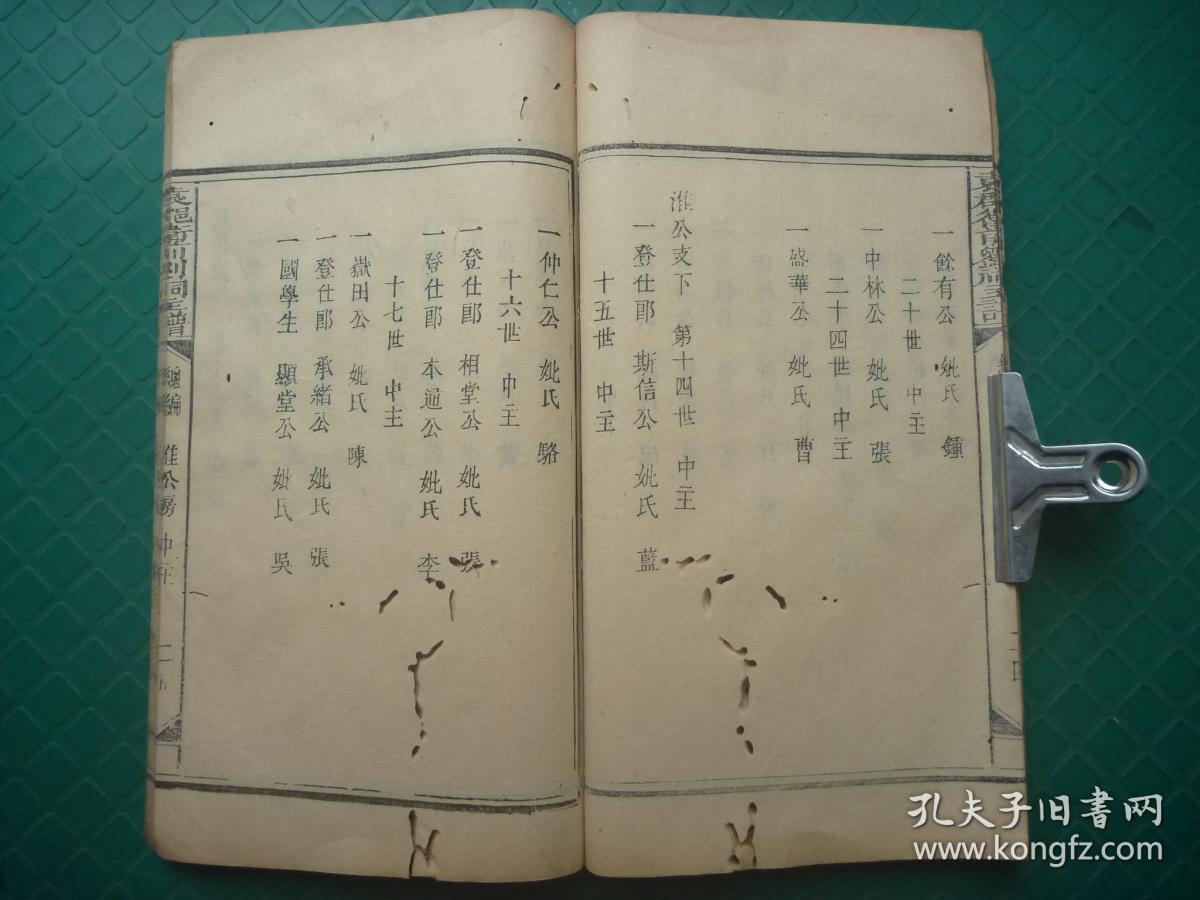 一餘有公 妣氏 鍾
二十世 中主
一中林公 妣氏 張
二十四世 中主
一盛華公 妣氏 曹
淮公支下 第十四世 中主
一登仕郎 斯信公 妣氏 藍
十五世 中主
一仲仁公 妣氏 駱
十六世 中主
一登仕郎 相堂公 妣氏 張
一登仕郎 本適公 妣氏 李
十七世 中主
一嶽田公 妣氏 陳
一登仕郎 承緒公 妣氏 張
一國學生 顯堂公 妣氏 吳
總編 淮公房 中主
孔夫子旧书网
www.kongfz.com